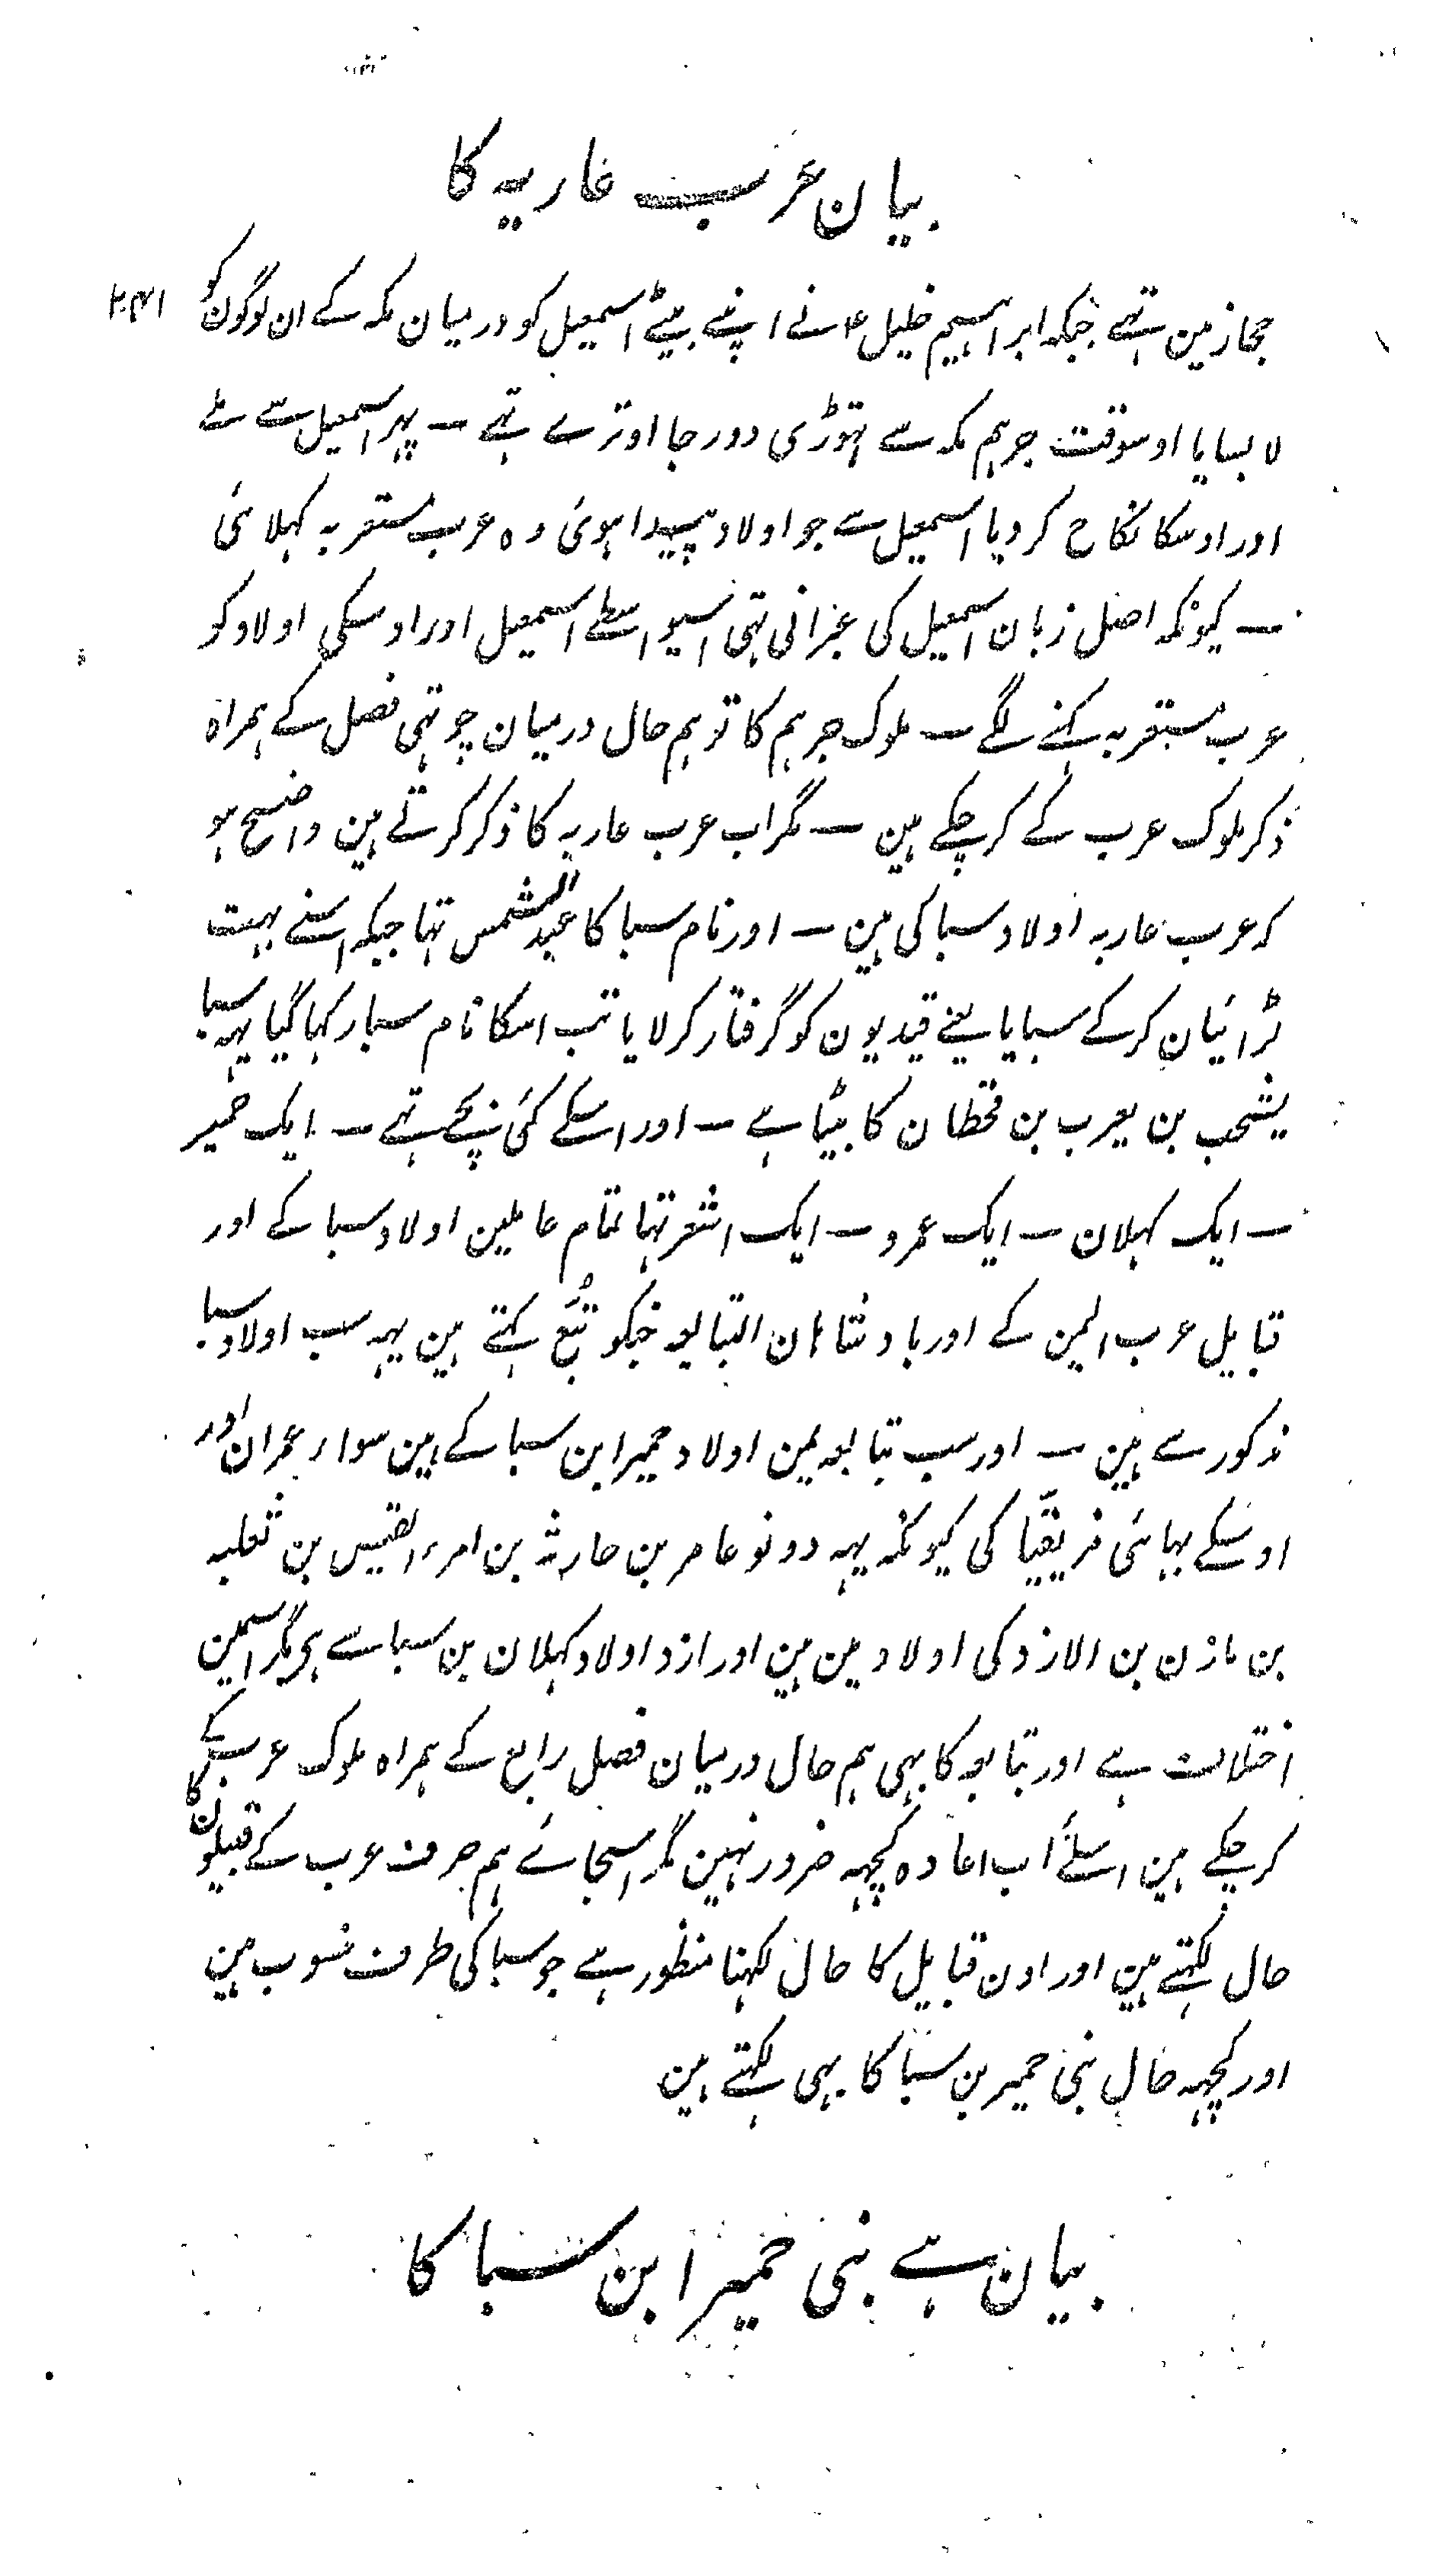 بیان عرب عاربہ کا
حجاز مین تہے جبکہ ابراہیم خلیل ع نے اپنے بیٹے اسمعیل کو درمیان مکہ کے ان لوگون کو
لا بسایا اوسوقت جرہم مکہ سے تہوڑی دور جا اوترے تہے — پہر اسمعیل سے ملے
اور اوسکا نکاح کر دیا اسمعیل سے جو اولاد پیدا ہوئی وہ عرب مستعربہ کہلائی
— کیونکہ اصل زبان اسمعیل کی عبرانی تہی اسیواسطے اسمعیل اور اوسکی اولاد کو
عرب مستعربہ کہنے لگے — ملوک جرہم کا تو ہم حال درمیان چوتہی فصل کے ہمراہ
ذکر ملوک عرب کے کرچکے ہین — مگر اب عرب عاربہ کا ذکر کرتے ہین واضح ہو
کہ عرب عاربہ اولاد سبا کی ہین — اور نام سبا کا عبد الشمس تہا جبکہ اسنے بہت
لڑائیان کرکے سبایا یعنے قیدیون کو گرفتار کر لایا تب اسکا نام سبا رکہا گیا یہہ سبا
یشحب بن یعرب بن قحطان کا بیٹا ہے — اور اسکے کئی بچے تہے — ایک حمیر
— ایک کہلان — ایک عمرو — ایک اشعر تہا تمام عاملین اولاد سبا کے اور
قبایل عرب الیمن کے اور بادشاہان التبابعہ جنکو تُبَّع کہتے ہین یہہ سب اولاد سبا
مذکور سے ہین — اور سب تبابعہ یمن اولاد حمیر ابن سبا کے ہین سواء عمران اور
اوسکے بہائی مزیقیا کی کیونکہ یہہ دونو عامر بن حارثہ بن امرء القیس بن ثعلبہ
بن مازن بن الازد کی اولاد مین ہین اور ازد اولاد کہلان بن سبا سے ہی مگر اسمین
اختلاف ہے اور تبابعہ کا بہی ہم حال درمیان فصل رابع کے ہمراہ ملوک عرب کے
کرچکے ہین اسلئے اب اعادہ کچہہ ضرور نہین مگر اسجائے ہم صرف عرب کے قبیلون کا
حال لکہتے ہین اور اون قبایل کا حال لکہنا منظور ہے جو سبا کی طرف منسوب ہین
اور کچہہ حال بنی حمیر بن سبا کا بہی لکہتے ہین
بیان ہے بنی حمیر ابن سبا کا